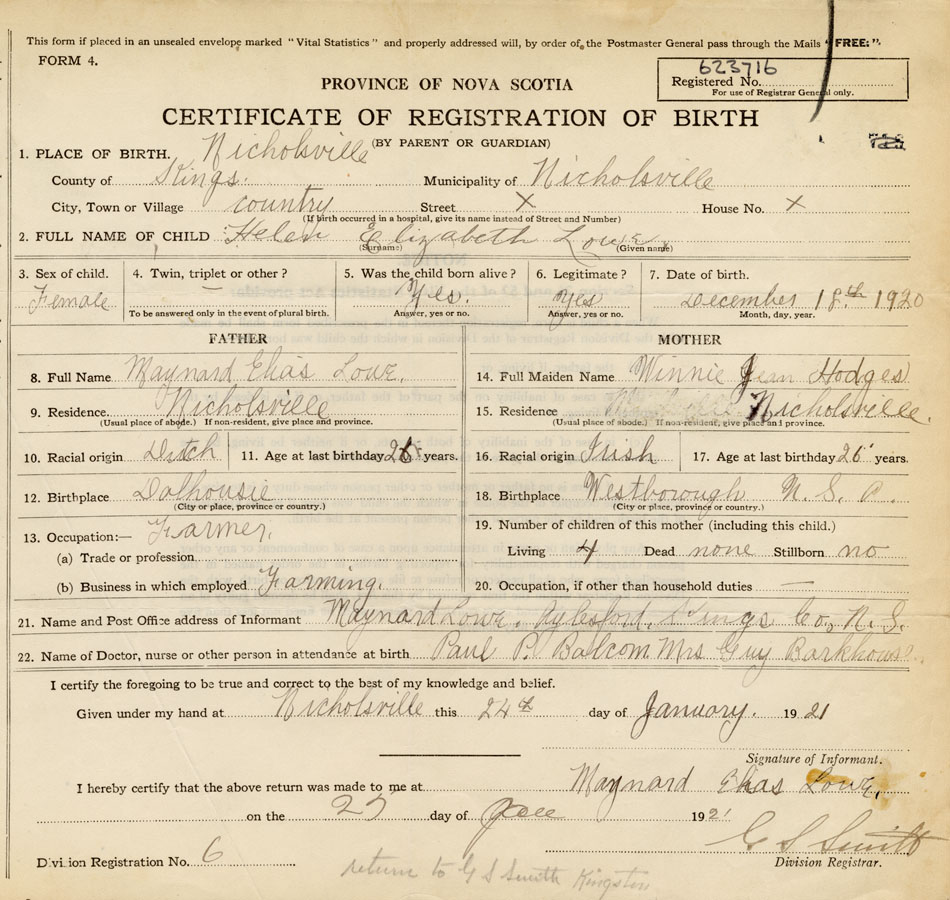 This form if placed in an unsealed envelope marked "Vital Statistics" and properly addressed will, by order of the Postmaster General pass through the Mails "FREE:".
FORM 4.
623716
Registered No.
For use of Registrar General only.
PROVINCE OF NOVA SCOTIA
CERTIFICATE OF REGISTRATION OF BIRTH
(BY PARENT OR GUARDIAN)
1. PLACE OF BIRTH, Nicholsville
County of Kings. Municipality of Nicholsville
City, Town or Village country Street X House No. X
(If birth occurred in a hospital, give its name instead of Street and Number)
2. FULL NAME OF CHILD Helen Elizabeth Lowe
(Surname) (Given name)
3. Sex of child. 4. Twin, triplet or other? 5. Was the child born alive? 6. Legitimate? 7. Date of birth.
Female — Yes. Yes December 18th 1920
To be answered only in the event of plural birth. Answer, yes or no. Answer, yes or no. Month, day, year.
FATHER
8. Full Name Maynard Elias Lowe.
9. Residence. Nicholsville
(Usual place of abode.) If non-resident, give place and province.
10. Racial origin Dutch 11. Age at last birthday 26 years.
12. Birthplace Dalhousie
(City or place, province or country.)
13. Occupation:— Farmer.
(a) Trade or profession
(b) Business in which employed Farming.
MOTHER
14. Full Maiden Name Winnie Jean Hodges
15. Residence Nicholsville.
(Usual place of abode.) If non-resident, give place and province.
16. Racial origin Irish 17. Age at last birthday 26 years.
18. Birthplace Westborough
(City or place, province or country.)
19. Number of children of this mother (including this child.)
Living 4 Dead none Stillborn no
20. Occupation, if other than household duties —
21. Name and Post Office address of Informant Maynard Lowe. Aylesford. Kings Co, N.S.
22. Name of Doctor, nurse or other person in attendance at birth Paul P. Balcom Mrs Guy Barkhouse
I certify the foregoing to be true and correct to the best of my knowledge and belief.
Given under my hand at Nicholsville this 24th day of January. 1921
Signature of Informant.
Maynard Elias Lowe.
I hereby certify that the above return was made to me at
on the 27 day of 1921
G S Smith
Division Registration No. 6 Division Registrar.
return to G S Smith Kingston